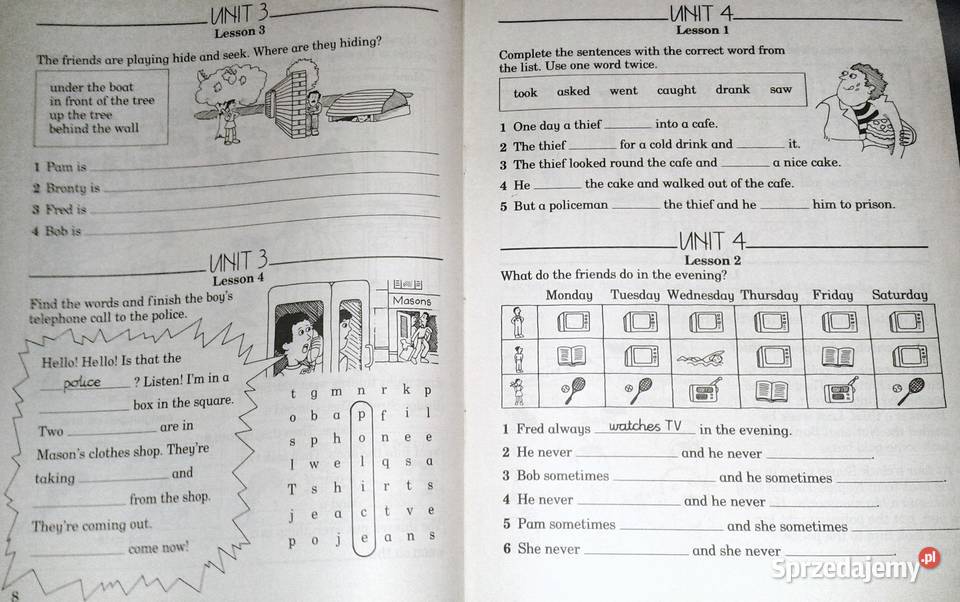 UNIT 3
Lesson 3
The friends are playing hide and seek. Where are they hiding?
under the boat
in front of the tree
up the tree
behind the wall
1 Pam is
2 Bronty is
3 Fred is
4 Bob is
UNIT 3
Lesson 4
Find the words and finish the boy's
telephone call to the police.
Masons
Hello! Hello! Is that the
police ? Listen! I'm in a
box in the square.
Two are in
Mason's clothes shop. They're
taking and
from the shop.
They're coming out.
come now!
t g m n r k p
o b a p f i l
s p h o n e e
l w e l q s a
T s h i r t s
j e a c t v e
p o j e a n s
8
UNIT 4
Lesson 1
Complete the sentences with the correct word from
the list. Use one word twice.
took asked went caught drank saw
1 One day a thief into a cafe.
2 The thief for a cold drink and it.
3 The thief looked round the cafe and a nice cake.
4 He the cake and walked out of the cafe.
5 But a policeman the thief and he him to prison.
UNIT 4
Lesson 2
What do the friends do in the evening?
Monday Tuesday Wednesday Thursday Friday Saturday
1 Fred always watches TV in the evening.
2 He never and he never .
3 Bob sometimes and he sometimes .
4 He never and he never .
5 Pam sometimes and she sometimes
6 She never and she never .
Sprzedajemy.pl